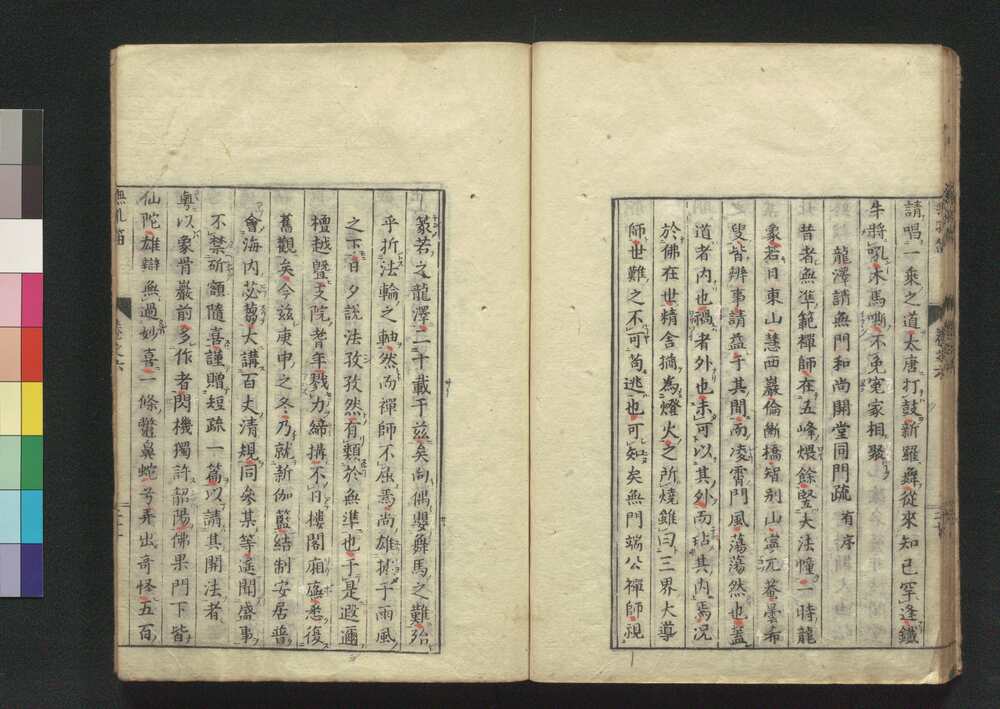 請唱一乘之道太唐打鼓新羅舞從來知己罕逢鐵
牛將吼木馬嘶不免冤家相聚
龍澤請無門和尚開堂同門疏 有序
昔者無準範禪師在五峰煨餘竪大法幢一時龍
象若日東山慧西巖倫斷橋智別山寧兀菴曇希
叟皆辨事請益于其間而凌霄門風蕩蕩然也蓋
道者內也禍者外也未可以其外而玷其內焉況
於佛在世精舍摘為燈火之所燒雖曰三界大導
師世難之不可苟逃也可知矣無門端公禪師視
篆若之龍澤二十載于茲矣向偶嬰舞馬之難殆
乎折法輪之軸然而禪師不屈焉尚雄據于雨風
之下日夕說法孜孜然有類於無準也于是遐邇
檀越曁支院耆年戮力締搆不日樓閣廂廡悉復
舊觀矣今茲庚申之冬乃就新伽藍結制安居普
會海內苾蒭大講百丈清規同參某等遙聞盛事
不禁斫額隨喜謹贈短疏一篇以請其開法者
粤以象骨巖前多作者閃機獨許韶陽佛果門下皆
仙陀雄辯無過妙喜一條鼈鼻蛇兮弄出奇怪五百
無孔笛
卷之六